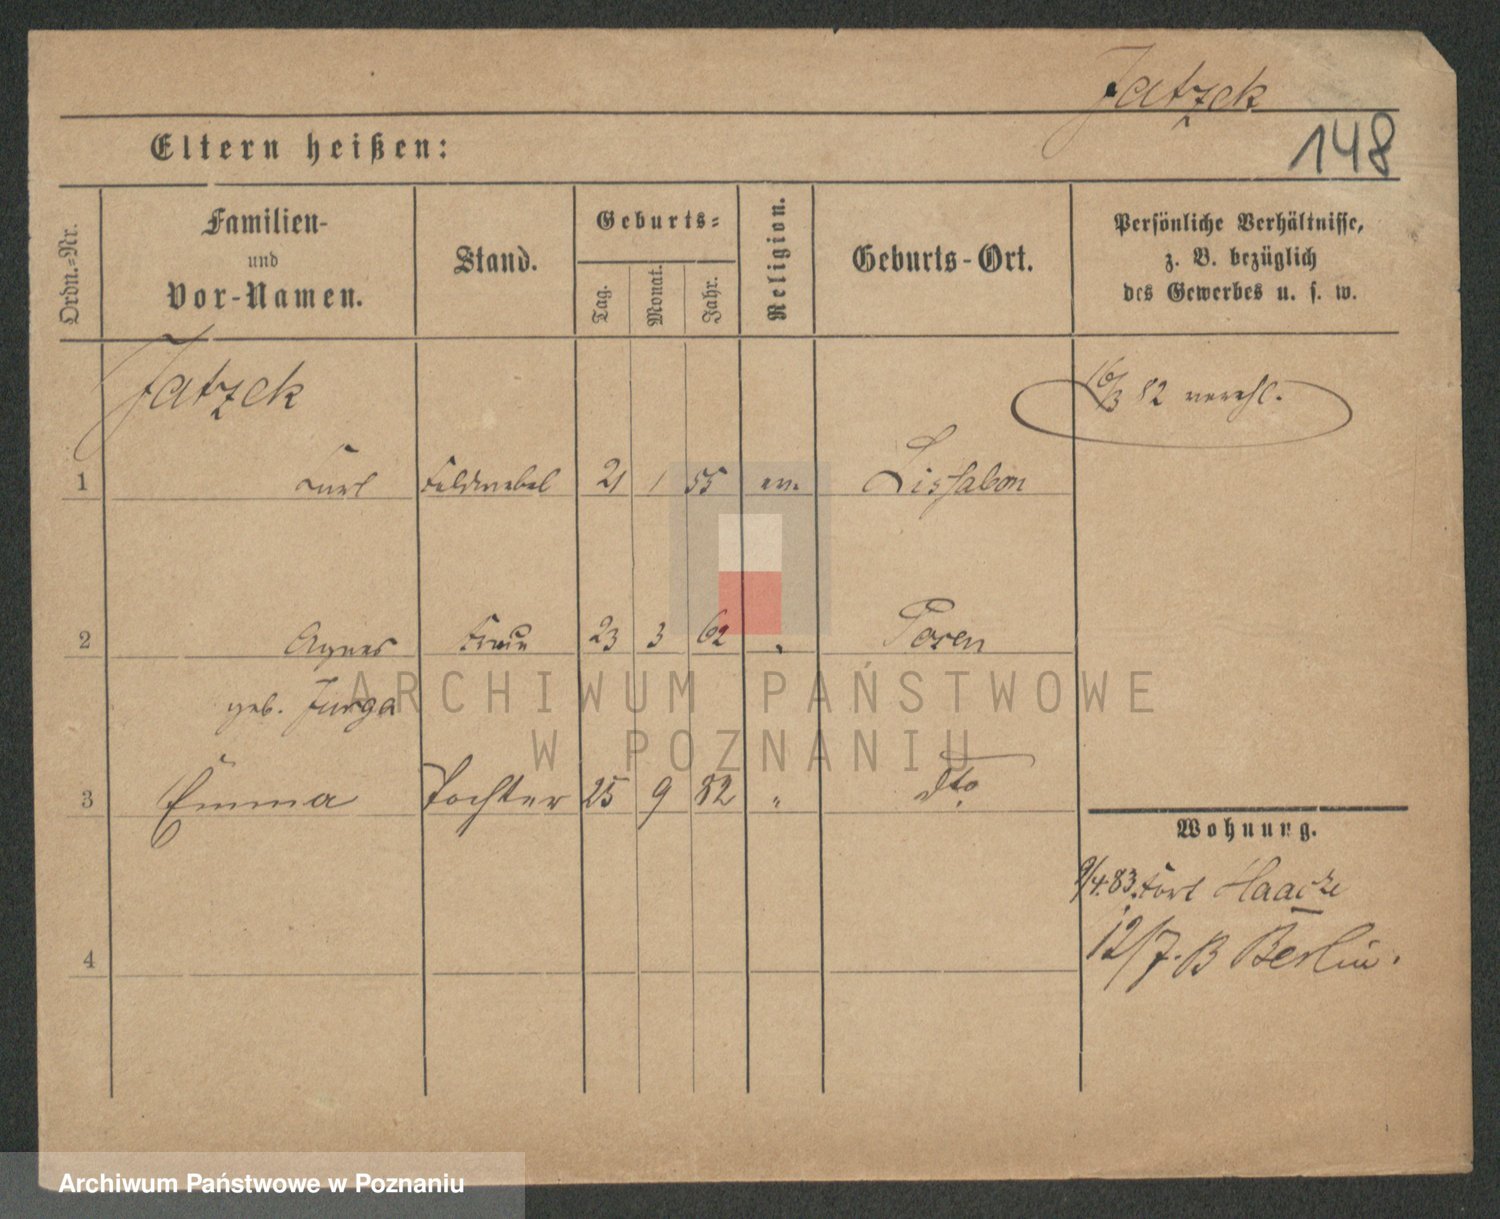 Jatzek
148
Eltern heißen:
Ordn.-Nr.
Familien-
und
Vor-Namen.
Stand.
Geburts-
Tag.
Monat.
Jahr.
Religion.
Geburts-Ort.
Persönliche Verhältnisse,
z. B. bezüglich
des Gewerbes u. s. w.
Jatzek
16/3 82 verehl.
1 Curl Feldwebel 21 1 55 ev. Lissabon
2 Agnes Frau 23 3 62 " Posen
geb. Jurga
3 Emma Tochter 25 9 82 " dto
Wohnung.
9/4.83. Fort Haacke
12/7. B Berlin.
4
ARCHIWUM PAŃSTWOWE
W POZNANIU
Archiwum Państwowe w Poznaniu